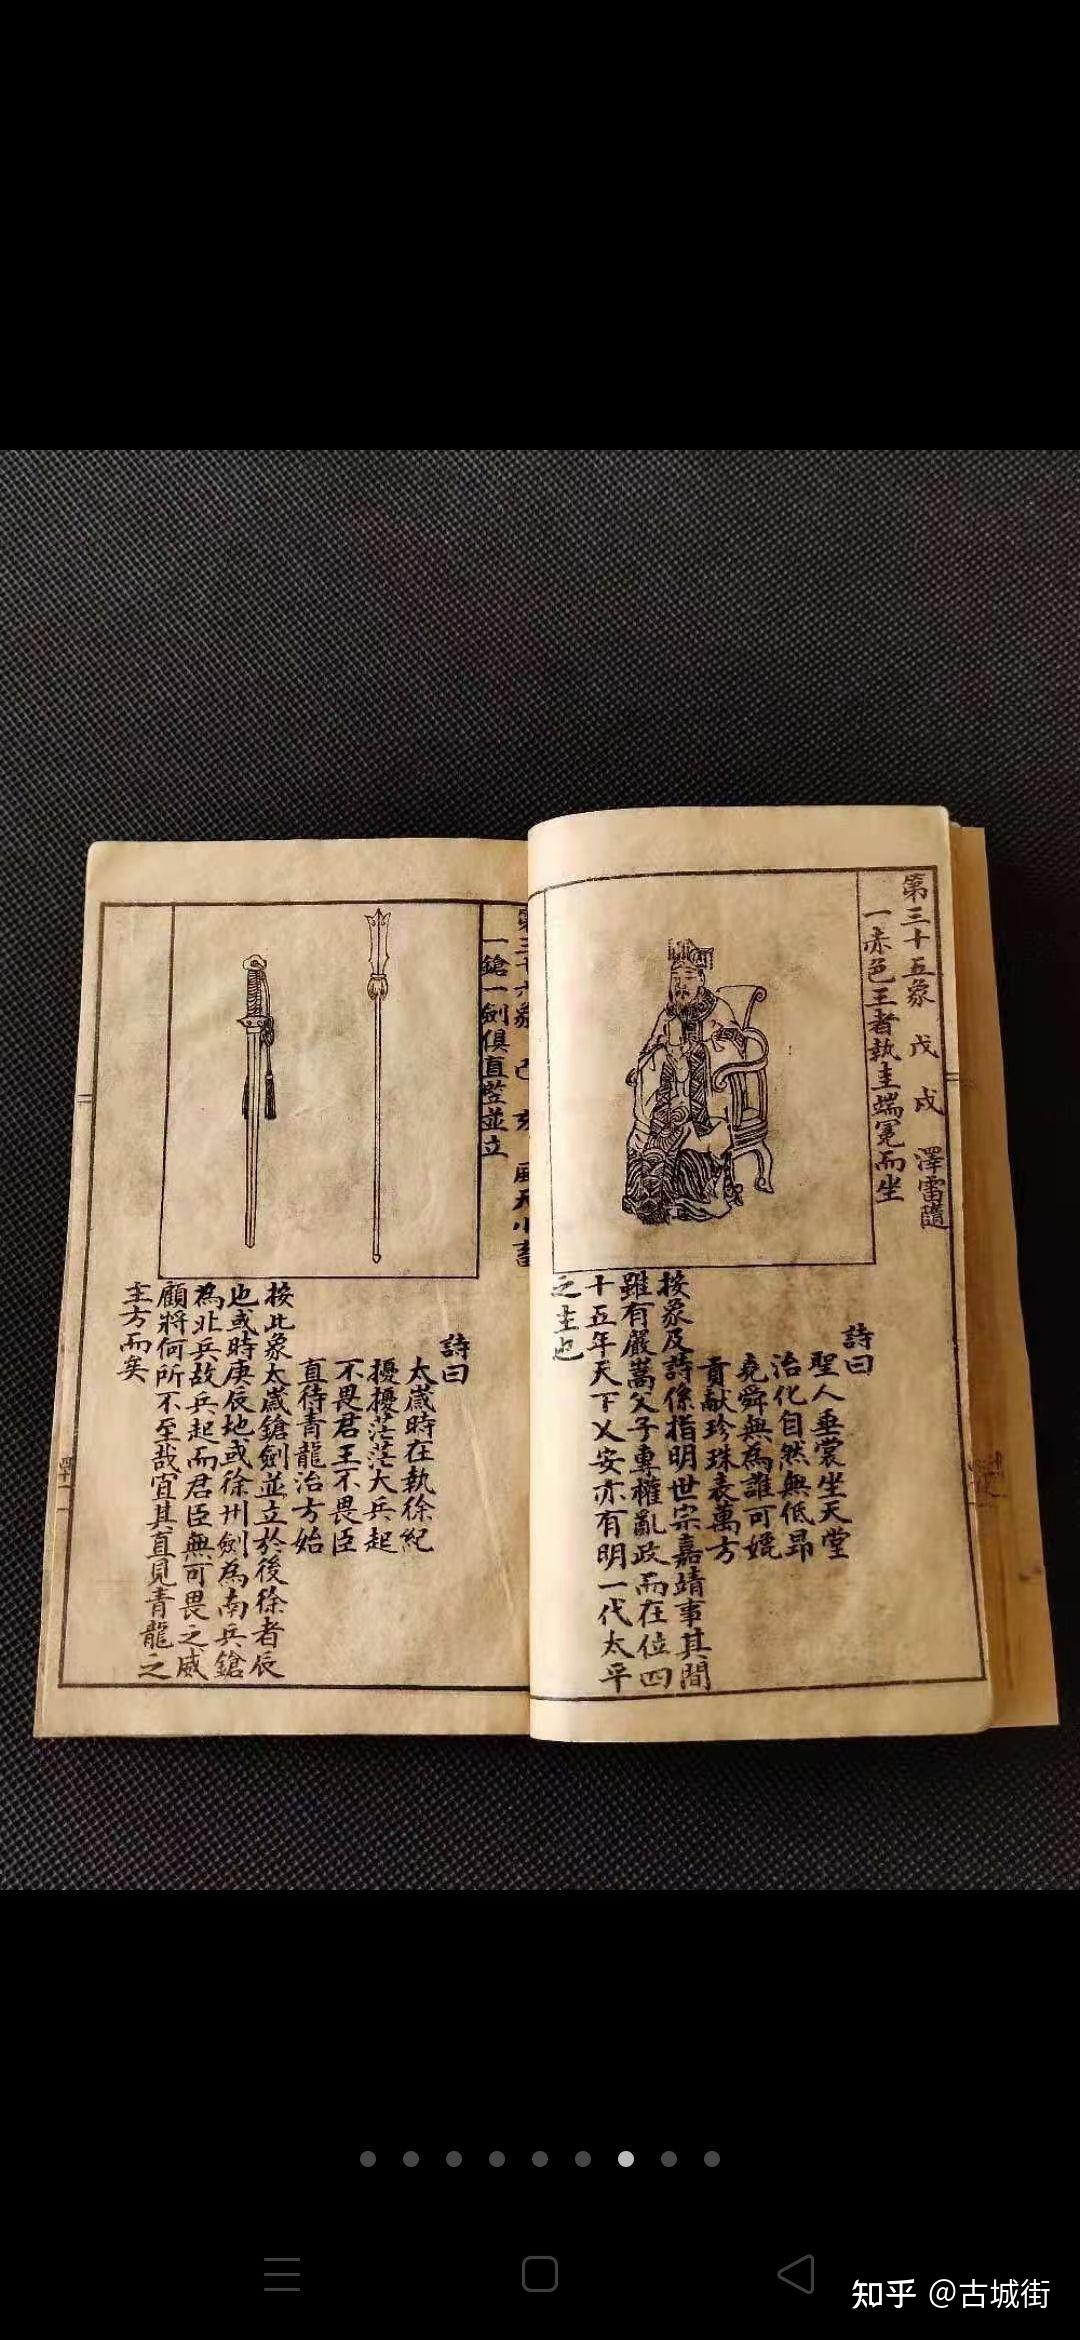 第三十五象 戊戌 澤雷隨
一赤色王者執圭端冕而坐
詩曰
聖人垂裳坐天堂
治化自然無低昂
堯舜無為誰可媲
貢獻珍珠表萬方
按象及詩係指明世宗嘉靖事其間
雖有嚴嵩父子專權亂政而在位四
十五年天下乂安亦有明一代太平
之主也
第三十六象 己亥 風天小畜
一鎗一劍俱直竪並立
詩曰
太歲時在執徐紀
擾擾茫茫大兵起
不畏君王不畏臣
直待青龍治方始
按此象太歲鎗劍並立於後徐者辰
也或時庚辰地或徐州劍為南兵鎗
為北兵故兵起而君臣無可畏之威
顧將何所不至哉宜其直見青龍之
主方而矣
知乎 @古城街